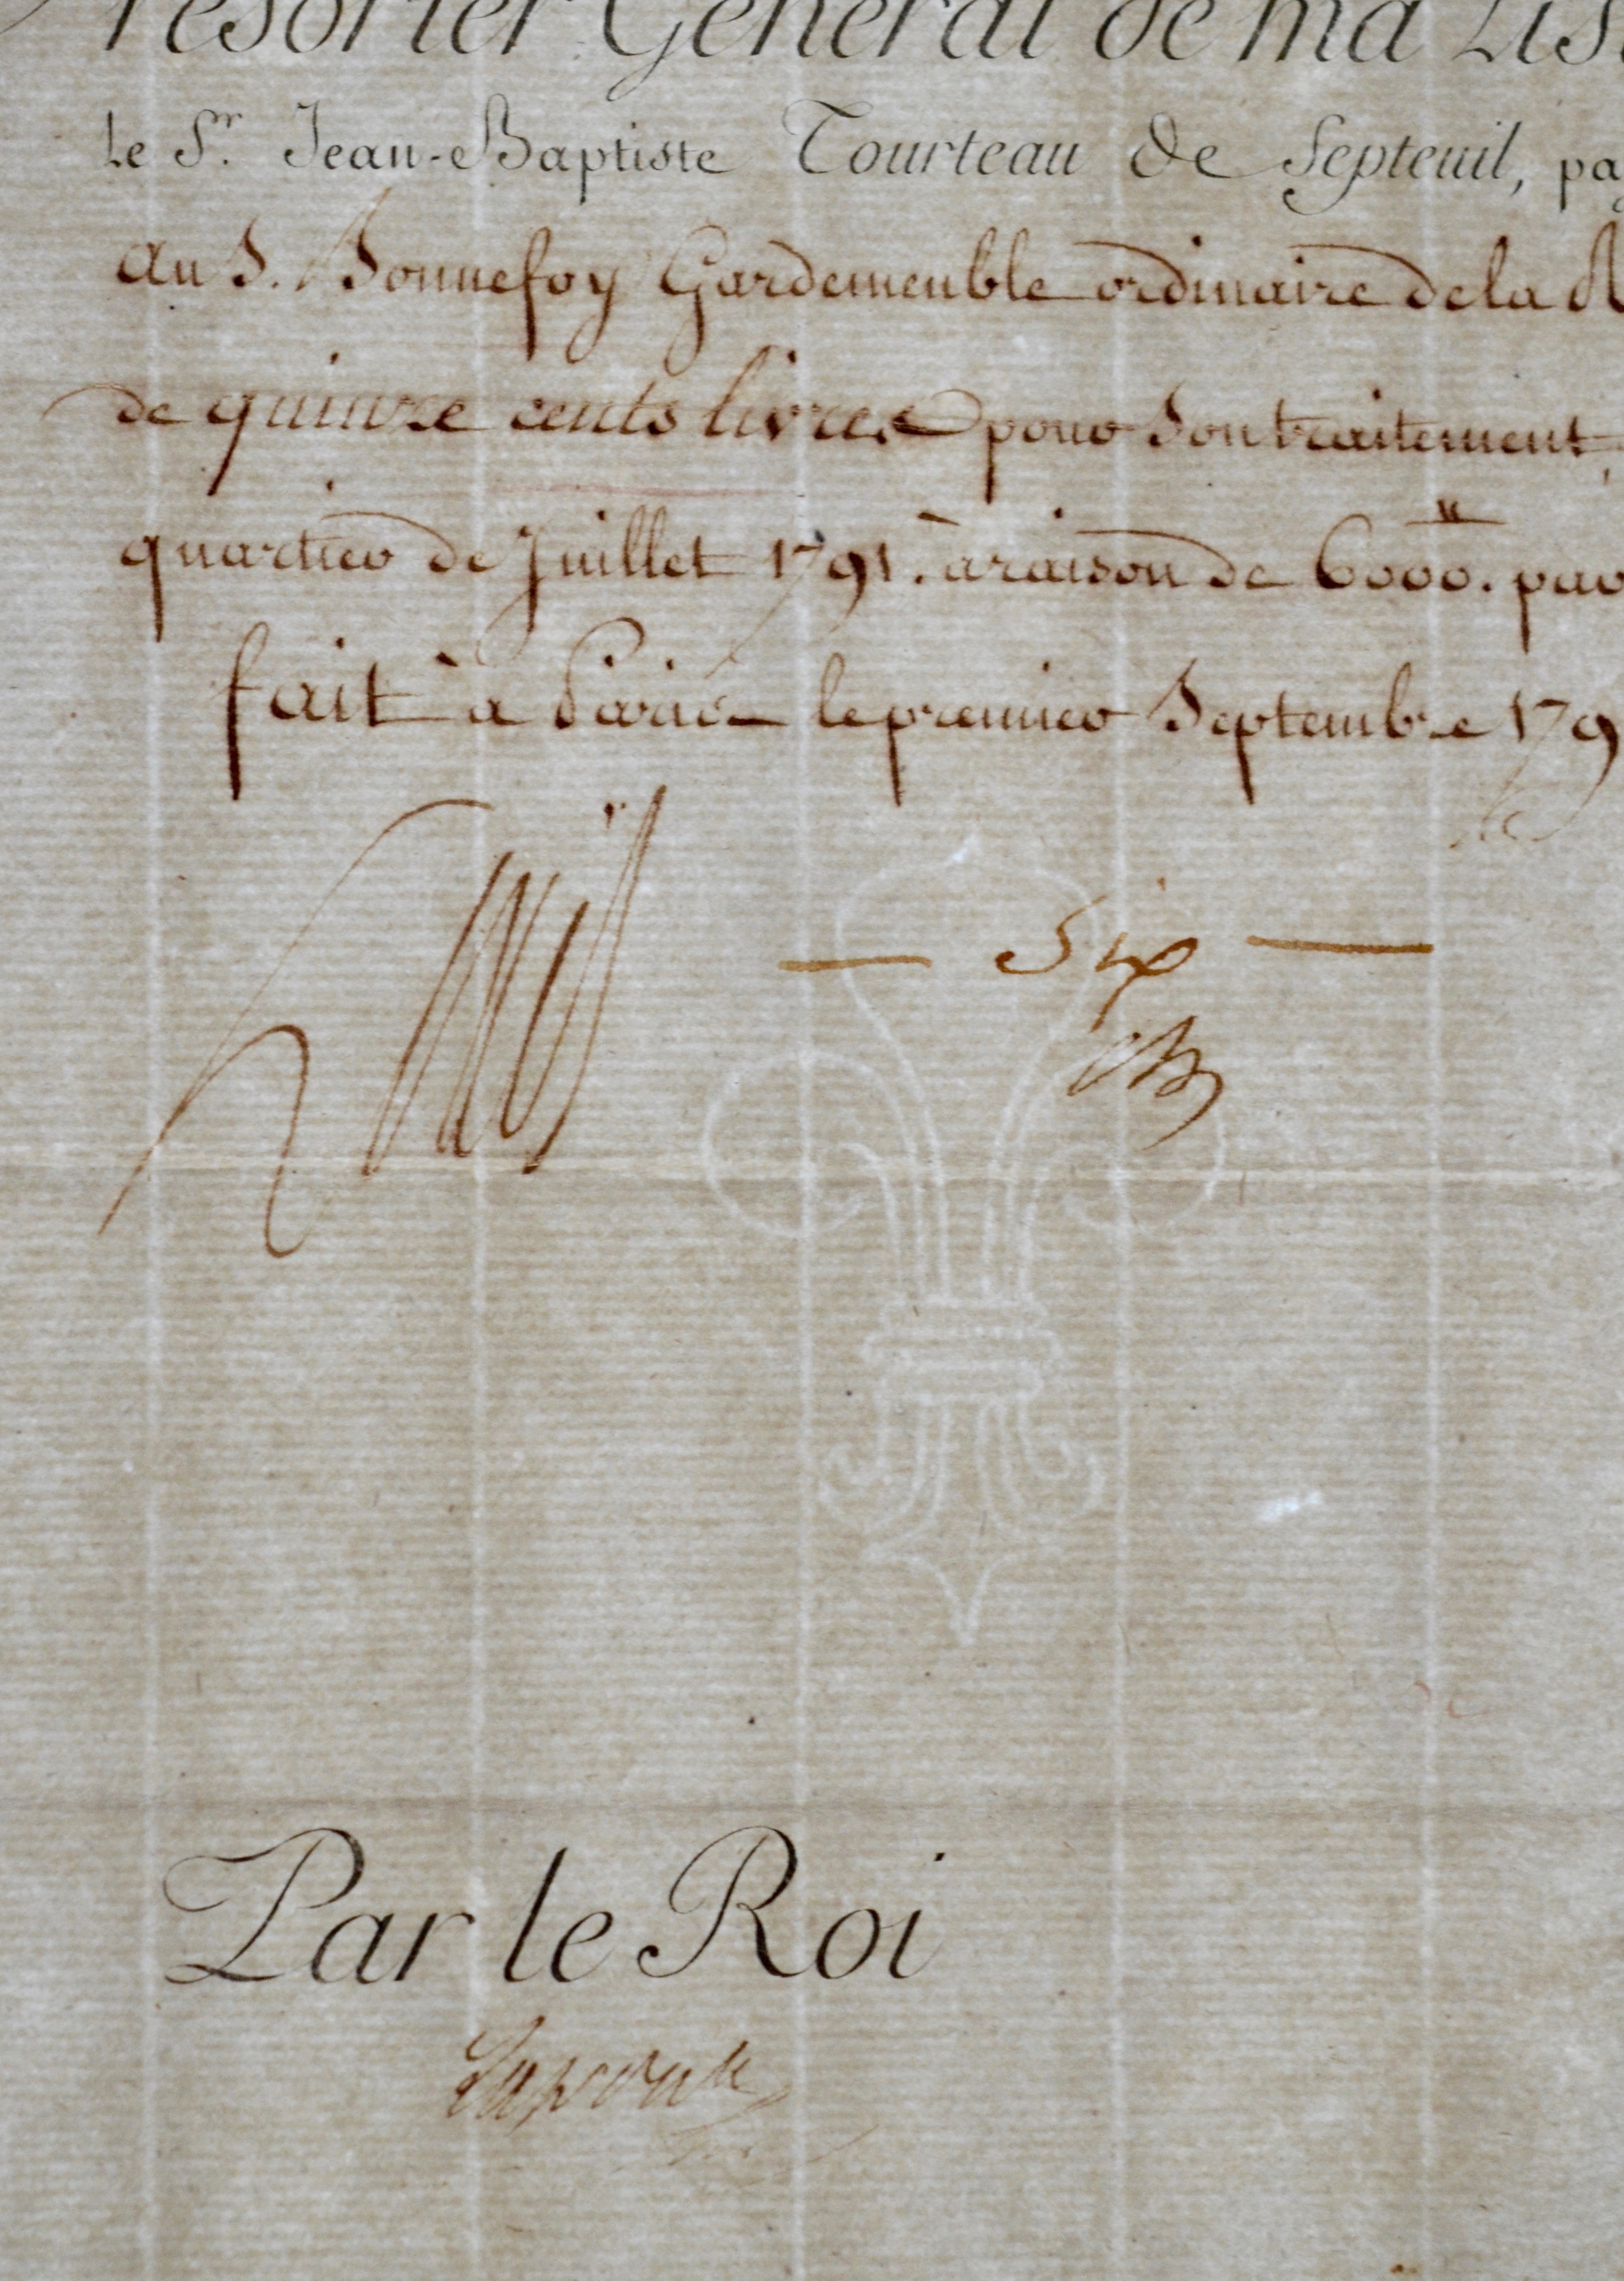 Trésorier Général de ma Lis
Le Sr. Jean-Baptiste Tourteau De Septeuil, pa
au S. Bonnefoy Gardemeuble ordinaire de la R
de quinze cents livres pour son traitement
quartier de Juillet 1791. à raison de 6000.tt par
fait à Paris le premier Septembre 179
Six
Par le Roi
Laporte